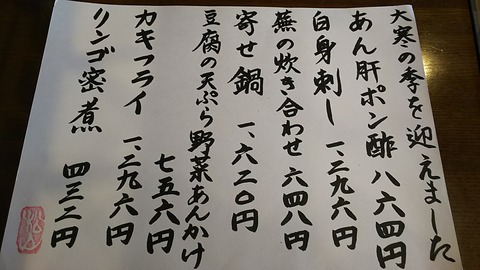 大寒の季を迎えました
あん肝ポン酢 八六四円
白身刺し 一、二九六円
蕪の炊き合わせ 六四八円
寄せ鍋 一、六二〇円
豆腐の天ぷら野菜あんかけ
七五六円
カキフライ 一、二九六円
リンゴ密煮 四三二円